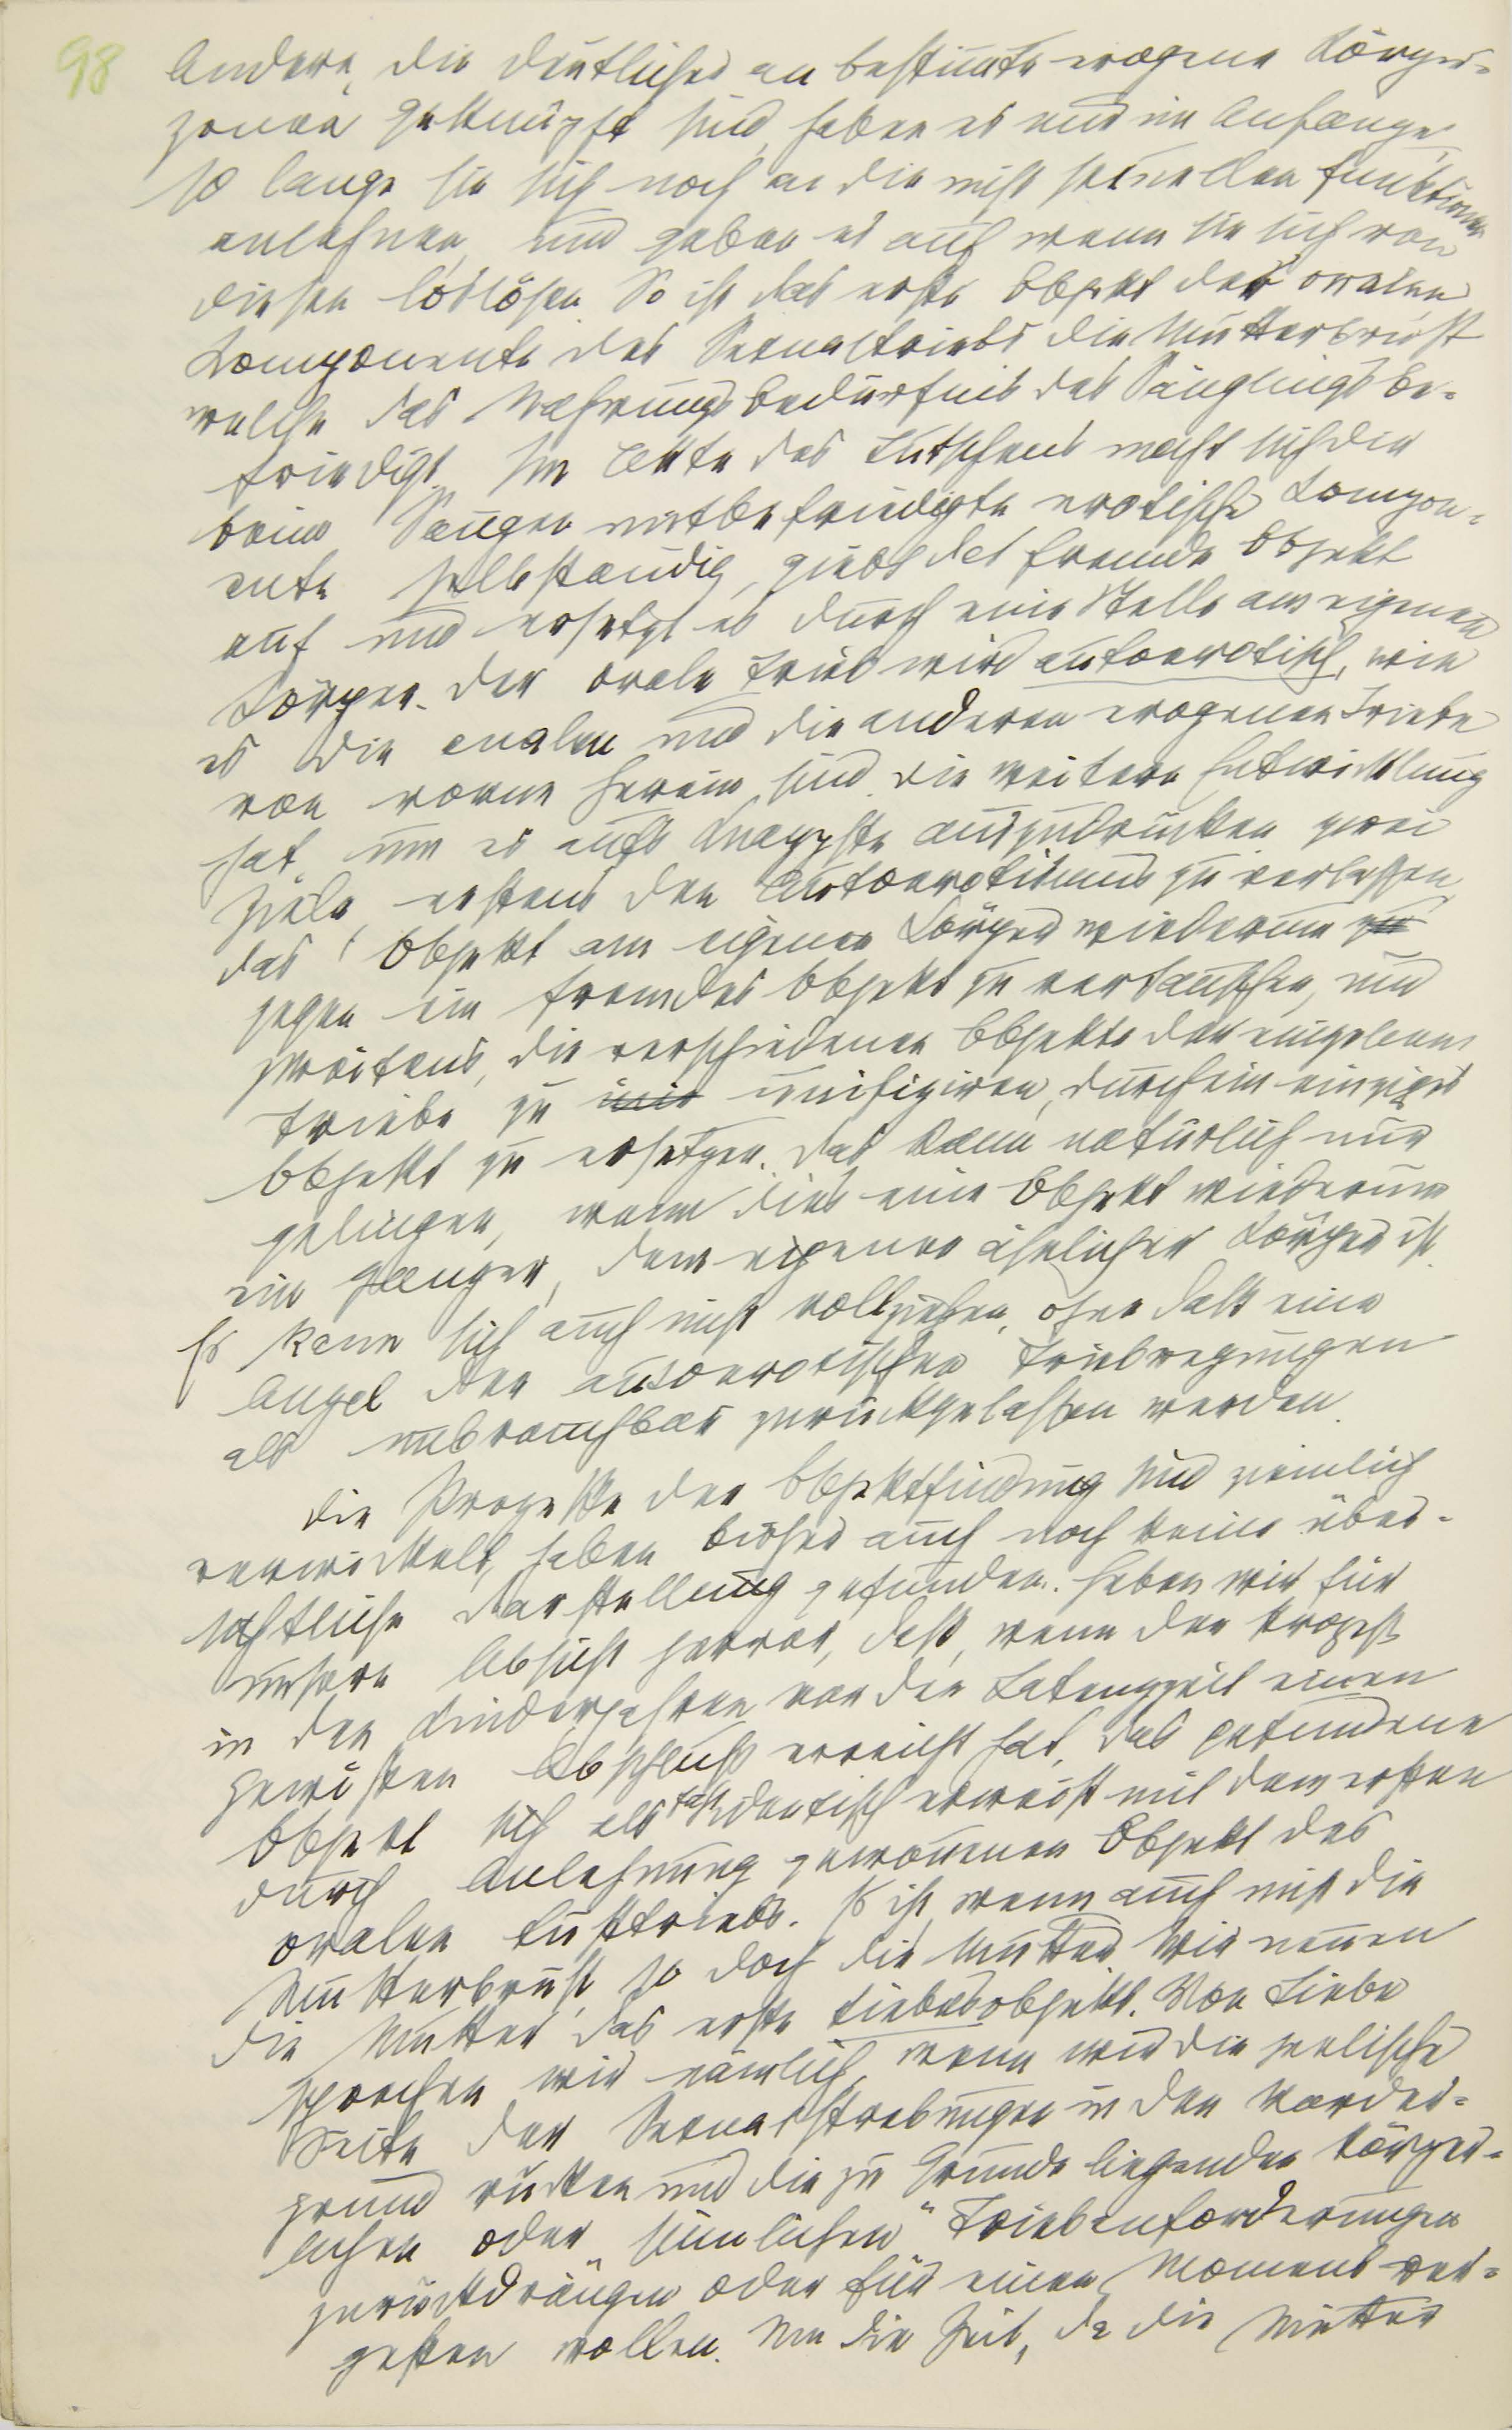 98
Andere, die deutlicher an bestimmte erogene Körper-
zonen geknüpft sind, haben es nur im Anfange,
so lange sie sich noch an die nicht sexuellen Funktionen
anlehnen, und geben es auf wenn sie sich von
diesen loslösen. So ist das erste Objekt der oralen
Komponente des Sexualtriebs die Mutterbrust
welche das Nahrungsbedürfnis des Säuglings be-
friedigt. Im Akte des Lutschens macht sich die
beim Saugen mitbefriedigte erotische Kompon-
ente selbständig, giebt das fremde Objekt
auf und ersetzt es durch eine Stelle am eigenen
Körper. Der orale Trieb wird autoerotisch, wie
es die analen und die anderen erogenen Triebe
von vorne herein sind. Die weitere Entwicklung
hat, um es aufs knappste auszudrücken, zwei
Ziele, erstens den Autoerotismus zu verlassen,
das Objekt am eigenen Körper wiederum zu
gegen ein fremdes Objekt zu vertauschen, und
zweitens, die verschiedenen Objekte der einzelnen
Triebe zu unifiziren, durch ein einziges
Objekt zu ersetzen. Das kann natürlich nur
gelingen, wenn dies eine Objekt wiederum
ein ganzer, dem eigenen ähnlicher Körper ist.
Es kann sich auch nicht vollziehen, ohne daß eine
Anzal der autoerotischen Triebregungen
als unbrauchbar zurückgelassen werden.
Die Prozesse der Objektfindung sind ziemlich
verwickelt, haben bisher auch noch keine über-
sichtliche Darstellung gefunden. Heben wir für
unsere Absicht hervor, daß, wenn der Prozeß
in den Kinderjahren vor der Latenzzeit einen
gewissen Abschluß erreicht hat, das gefundene
Objekt sich als fast identisch erweist mit dem ersten
durch Anlehnung gewonnenen Objekt des
oralen Lusttriebs. Es ist, wenn auch nicht die
Mutterbrust, so doch die Mutter. Wir nennen
die Mutter das erste Liebesobjekt. Von Liebe
sprechen wir nämlich, wenn wir die seelische
Seite der Sexualstrebungen in den Vorder-
grund rücken und die zu Grunde liegenden körper-
lichen oder „sinnlichen“ Triebanforderungen
zurückdrängen oder für einen Moment ver-
gessen wollen. Um die Zeit, da die Mutter